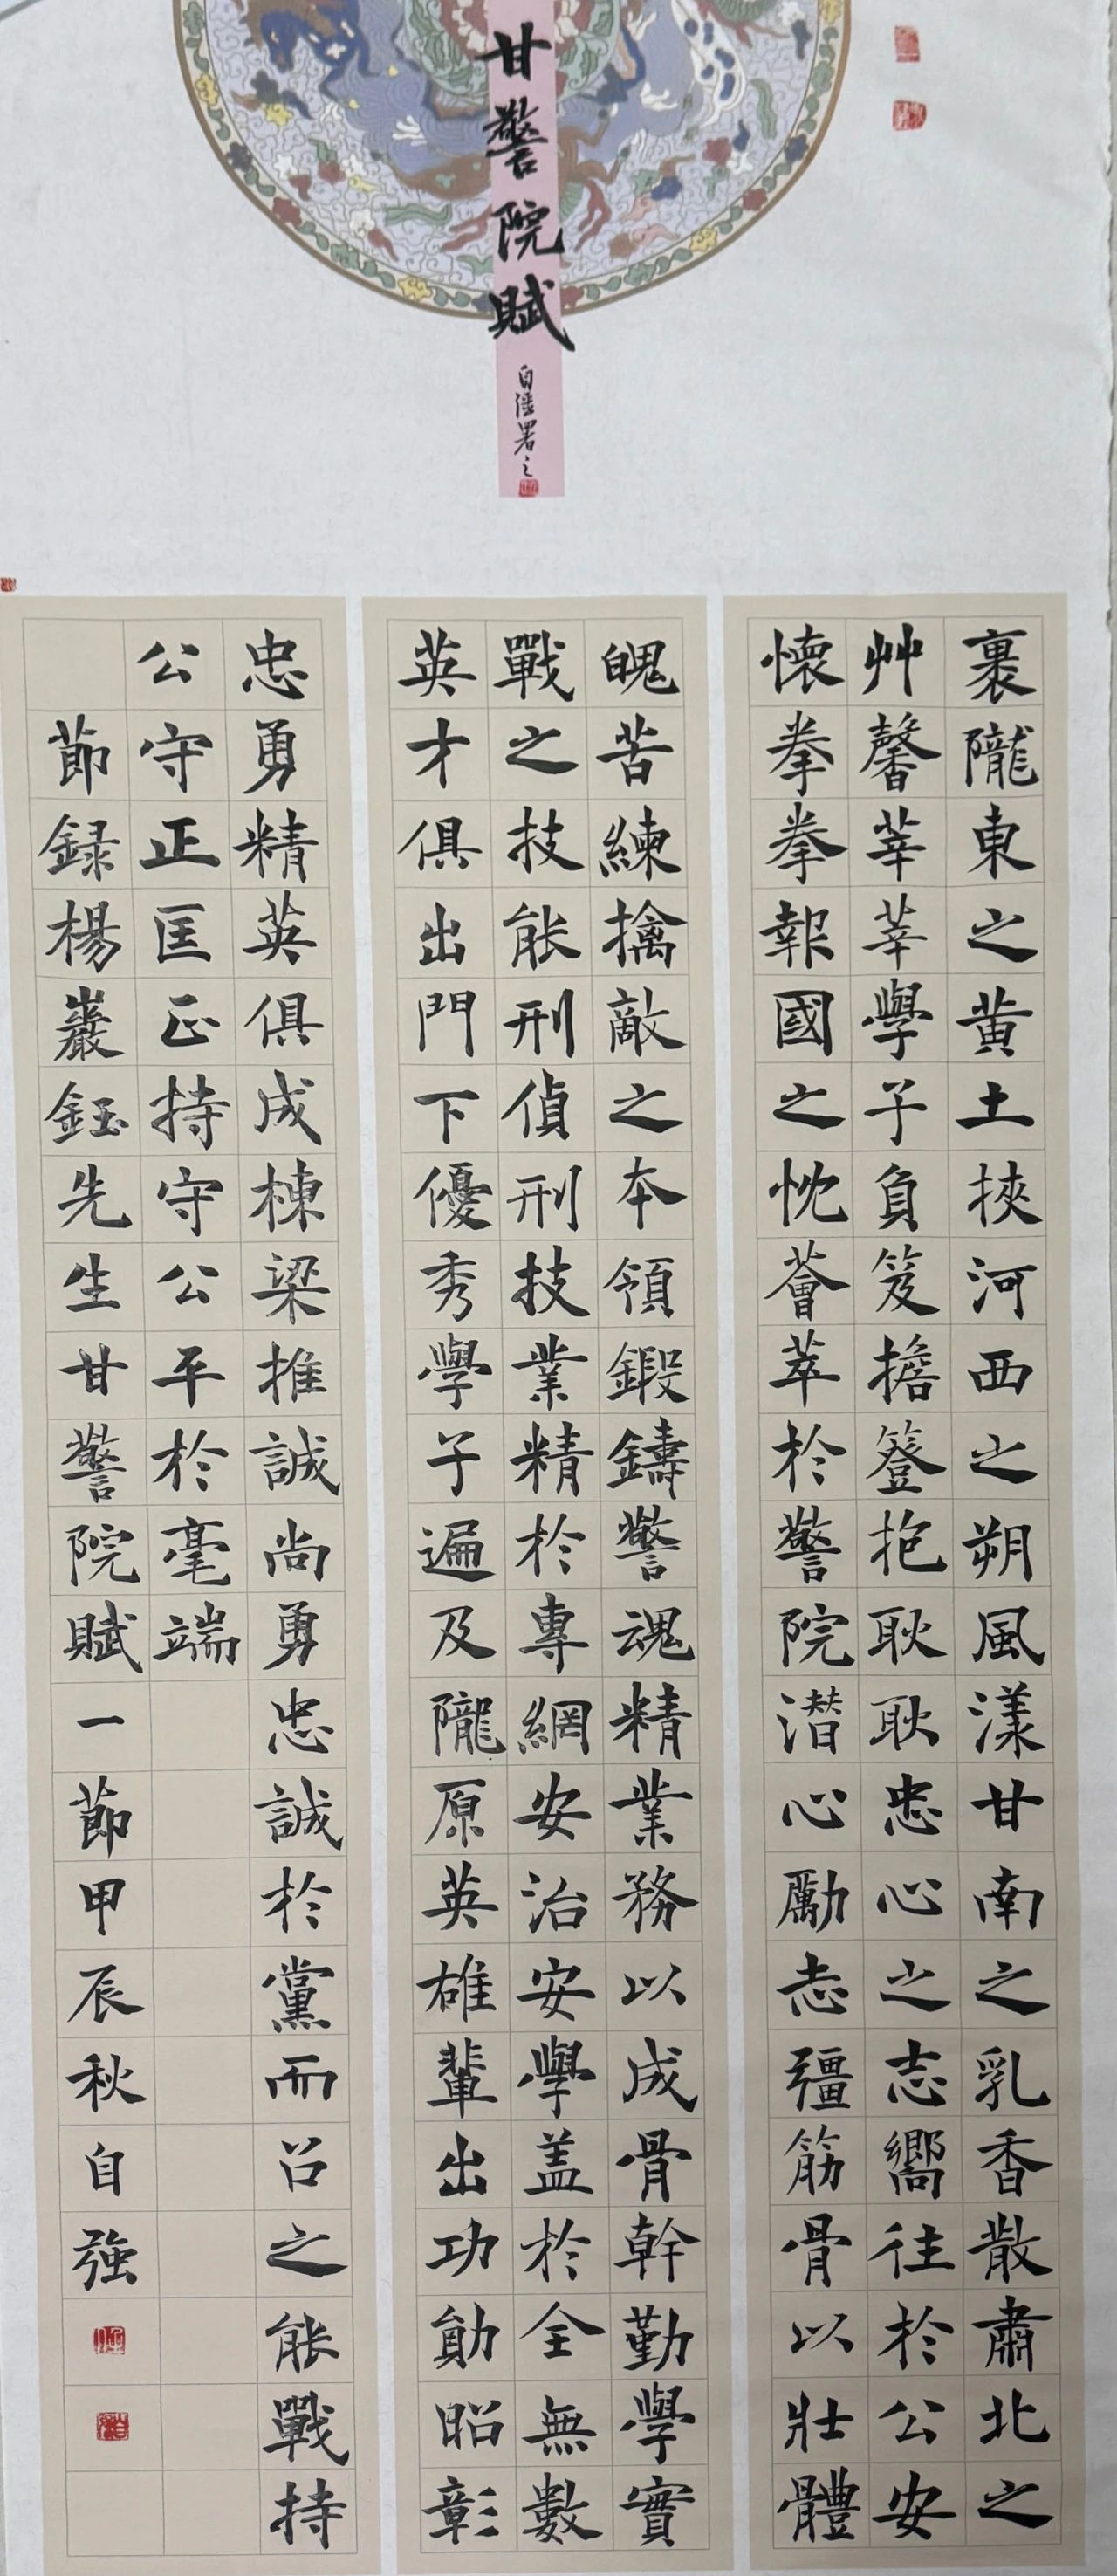 甘警院賦
自彊署之
裹隴東之黄土挾河西之朔風漾甘南之乳香散肅北之
艸馨莘莘學子負笈擔簦抱耿耿忠心之志嚮往於公安
懷拳拳報國之忱薈萃於警院潛心勵志彊筋骨以壯體
魄苦練擒敵之本領鍛鑄警魂精業務以成骨幹勤學實
戰之技能刑偵刑技業精於專網安治安學盖於全無數
英才俱出門下優秀學子遍及隴原英雄輩出功勛昭彰
忠勇精英俱成棟梁推誠尚勇忠誠於黨而召之能戰持
公守正匡正持守公平於毫端
節録楊巖鈺先生甘警院賦一節甲辰秋自強